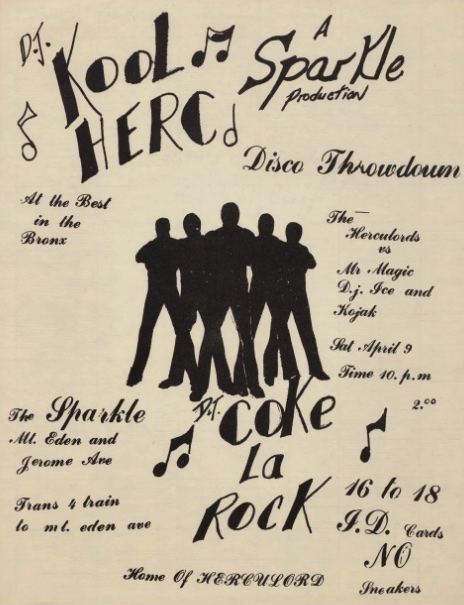 D.J.
KooL
HERC
A
Sparkle
Production
Disco Throwdown
At the Best
in the
Bronx
The
Herculords
vs
Mr Magic
D.j. Ice and
Kojak
Sat April 9
Time 10. p.m
2.00
The Sparkle
Mt. Eden and
Jerome Ave
Trans 4 train
to mt. eden ave
D.T.
COKE
La
ROCK
16 to 18
I.D. Cards
NO
Sneakers
Home Of HERCULORD